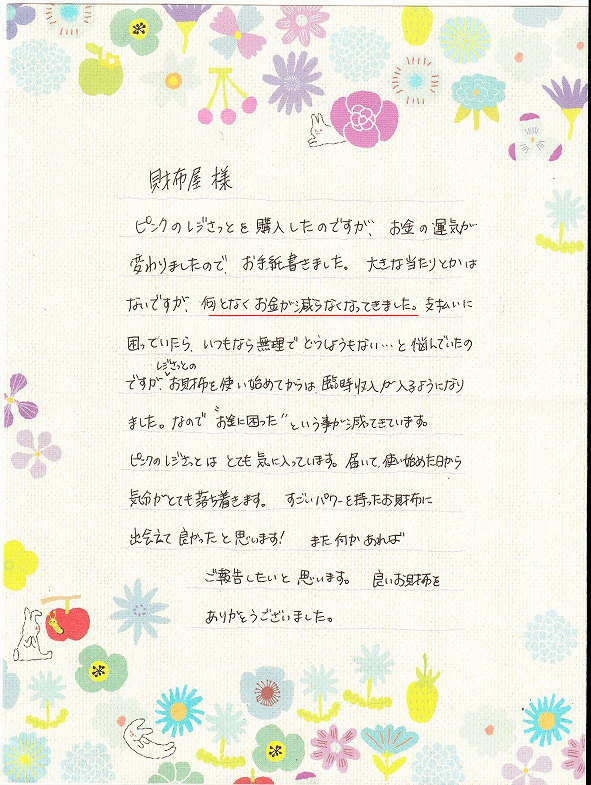 財布屋 様
ピンクのレジさっとを購入したのですが、お金の運気が
変わりましたので、お手紙書きました。大きな当たりとかは
ないですが、何となくお金が減らなくなってきました。支払いに
困っていたら、いつもなら無理でどうしようもない…と悩んでいたの
レジさっとの
ですが、お財布を使い始めてからは、臨時収入が入るようになり
ました。なので“お金に困った”という事が減ってきています。
ピンクのレジさっとはとても気に入っています。届いて、使い始めた日から
気分がとても落ち着きます。すごいパワーを持ったお財布に
出会えて良かったと思います！また何かあれば
ご報告したいと思います。良いお財布を
ありがとうございました。